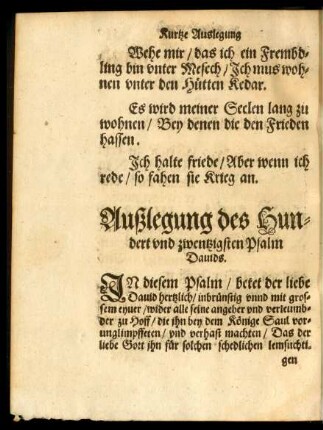 Kurtze Auslegung
Wehe mir / das ich ein Frembd-
ling bin vnter Mesech / Ich mus woh-
nen vnter den Hütten Kedar.
Es wird meiner Seelen lang zu
wohnen / Bey denen die den Frieden
hassen.
Ich halte friede / Aber wenn ich
rede / so fahen sie Krieg an.
Außlegung des Hun-
dert vnd zwentzigsten Psalm
Dauids.
IN diesem Psalm / betet der liebe
Dauid hertzlich / inbrünstig vnnd mit gros-
sem eyuer / wider alle seine angeber vnd verleumb-
der zu Hoff / die jhn bey dem Könige Saul vor-
unglimpffeten / vnd verhast machten / Das der
liebe Gott jhn für solchen schedlichen
gen